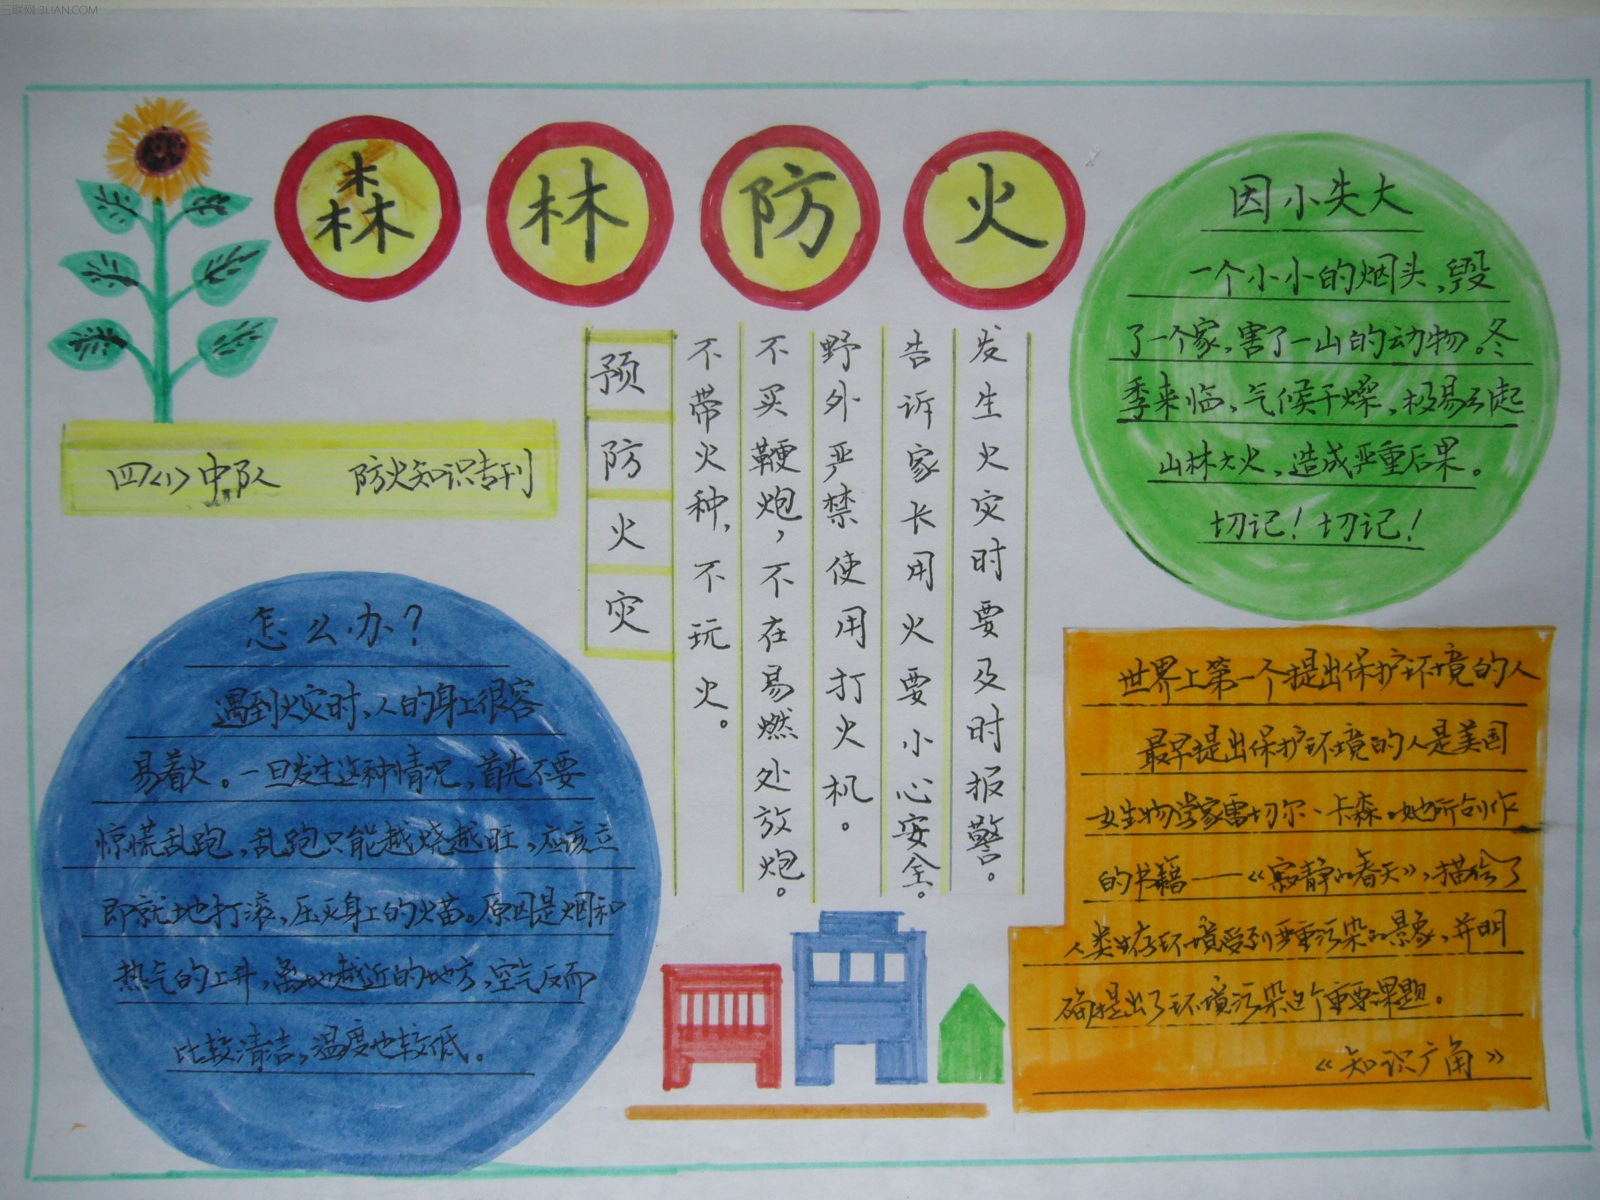 三联网 3LIAN.COM
森 林 防 火
四(1)中队 防火知识专刊
预防火灾
不带火种，不玩火。
不买鞭炮，不在易燃处放炮。
野外严禁使用打火机。
告诉家长用火要小心安全。
发生火灾时要及时报警。
因小失大
一个小小的烟头，毁
了一个家，害了一山的动物。冬
季来临，气候干燥，极易引起
山林大火，造成严重后果。
切记！切记！
怎么办？
遇到火灾时，人的身上很容
易着火。一旦发生这种情况，首先不要
惊慌乱跑，乱跑只能越烧越旺，应该立
即就地打滚，压灭身上的火苗。原因是烟和
热气的上升，离地越近的地方，空气反而
比较清洁，温度也较低。
世界上第一个提出保护环境的人
最早提出保护环境的人是美国
女生物学家雷切尔、卡森。她所创作
的书籍——《寂静的春天》，描绘了
人类生存环境受到严重污染的景象，并明
确提出了环境污染这个重要课题。
《知识广角》